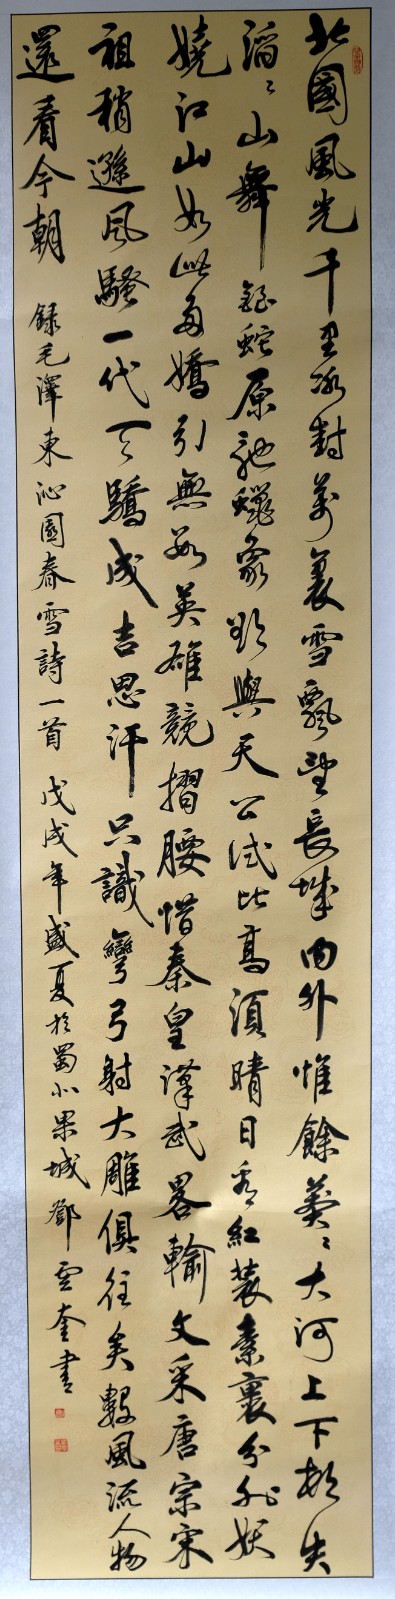 北國風光千里冰封萬裏雪飄望長城內外惟餘莽〻大河上下頓失
滔〻山舞銀蛇原馳蠟象欲與天公試比高須晴日看紅裝素裹分外妖
嬈江山如此多嬌引無數英雄競摺腰惜秦皇漢武畧輸文采唐宗宋
祖稍遜風騷一代天驕成吉思汗只識彎弓射大雕俱往矣數風流人物
還看今朝 録毛澤東沁園春雪詩一首 戊戌年盛夏於蜀北果城鄧雲奎書